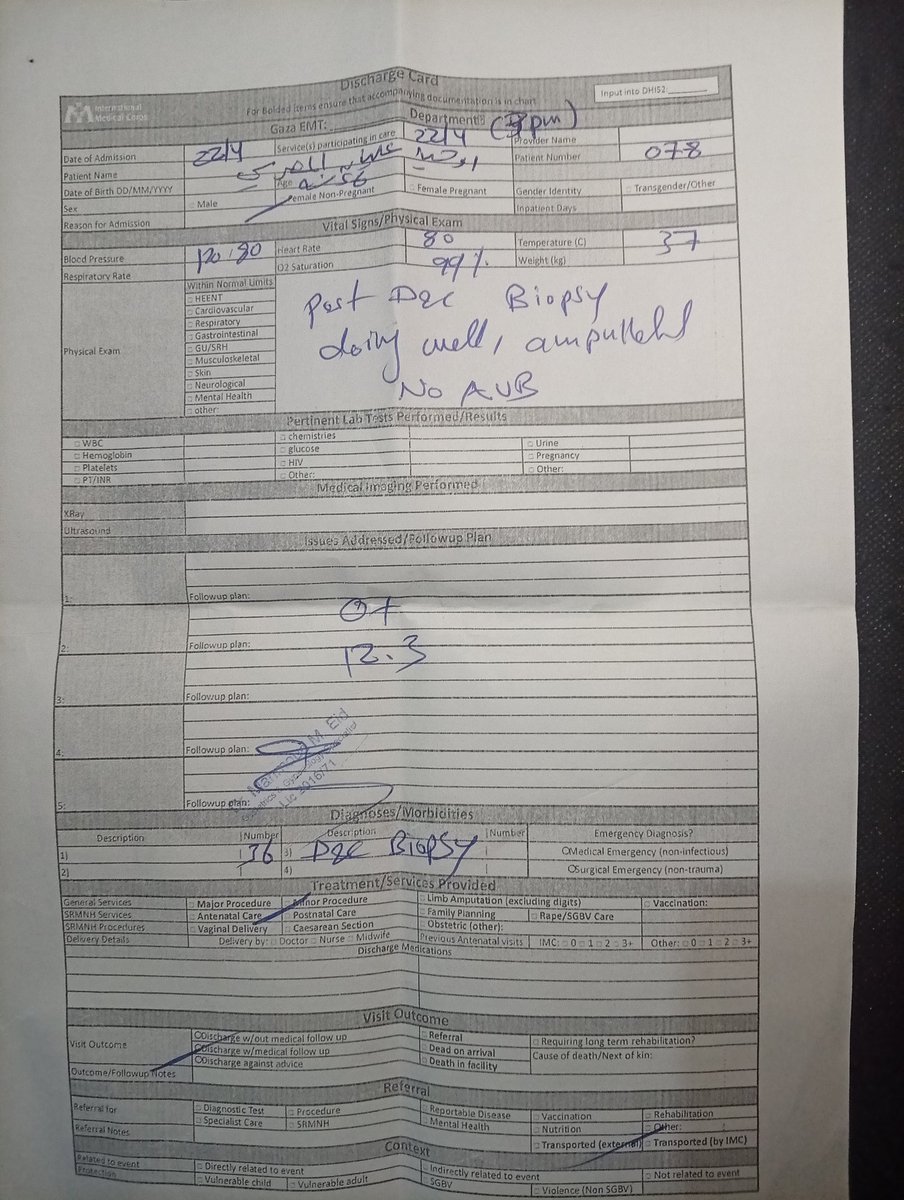 Discharge Card
International Medical Corps
For Bolded items ensure that accompanying documentation is in chart
Input into DHIS2:
Gaza EMT:
Department:
Date of Admission 22/4 Service(s) participating in care 22/4 (3 pm) Provider Name
Patient Name Patient Number 078
Date of Birth DD/MM/YYYY Age 56 سنة
Sex □ Male Female Non-Pregnant □ Female Pregnant Gender Identity □ Transgender/Other
Reason for Admission Inpatient Days
Vital Signs/Physical Exam
Blood Pressure 120/80 Heart Rate 80 Temperature (C) 37
Respiratory Rate O2 Saturation 99% Weight (kg)
Physical Exam
Within Normal Limits
□ HEENT
□ Cardiovascular
□ Respiratory
□ Gastrointestinal
□ GU/SRH
□ Musculoskeletal
□ Skin
□ Neurological
□ Mental Health
□ other:
Post D&C Biopsy
doing well,
No AUB
Pertinent Lab Tests Performed/Results
□ WBC □ chemistries □ Urine
□ Hemoglobin □ glucose □ Pregnancy
□ Platelets □ HIV □ Other:
□ PT/INR □ Other:
Medical Imaging Performed
XRay
Ultrasound
Issues Addressed/Followup Plan
1: Followup plan:
O+
2: Followup plan:
12.3
3: Followup plan:
4: Followup plan:
5: Followup plan:
M. Eid
Diagnoses/Morbidities
Description Number Description Number Emergency Diagnosis?
1) 36 3) D&C Biopsy OMedical Emergency (non-infectious)
2) 4) OSurgical Emergency (non-trauma)
Treatment/Services Provided
General Services □ Major Procedure Minor Procedure □ Limb Amputation (excluding digits) □ Vaccination:
SRMNH Services □ Antenatal Care Postnatal Care □ Family Planning □ Rape/SGBV Care
SRMNH Procedures □ Vaginal Delivery □ Caesarean Section □ Obstetric (other):
Delivery Details Delivery by: □ Doctor □ Nurse □ Midwife Previous Antenatal visits IMC: □ 0 □ 1 □ 2 □ 3+ Other: □ 0 □ 1 □ 2 □ 3+
Discharge Medications
Visit Outcome
Visit Outcome
ODischarge w/out medical follow up □ Referral □ Requiring long term rehabilitation?
ODischarge w/medical follow up □ Dead on arrival Cause of death/Next of kin:
ODischarge against advice □ Death in facility
Outcome/Followup Notes
Referral
Referral for □ Diagnostic Test □ Procedure □ Reportable Disease □ Vaccination □ Rehabilitation
□ Specialty Care □ SRMNH □ Mental Health □ Nutrition □ Other:
Referral Notes □ Transported (external) □ Transported (by IMC)
Context
Related to event □ Directly related to event □ Indirectly related to event □ Not related to event
Protection □ Vulnerable child □ Vulnerable adult □ SGBV □ Violence (Non SGBV)